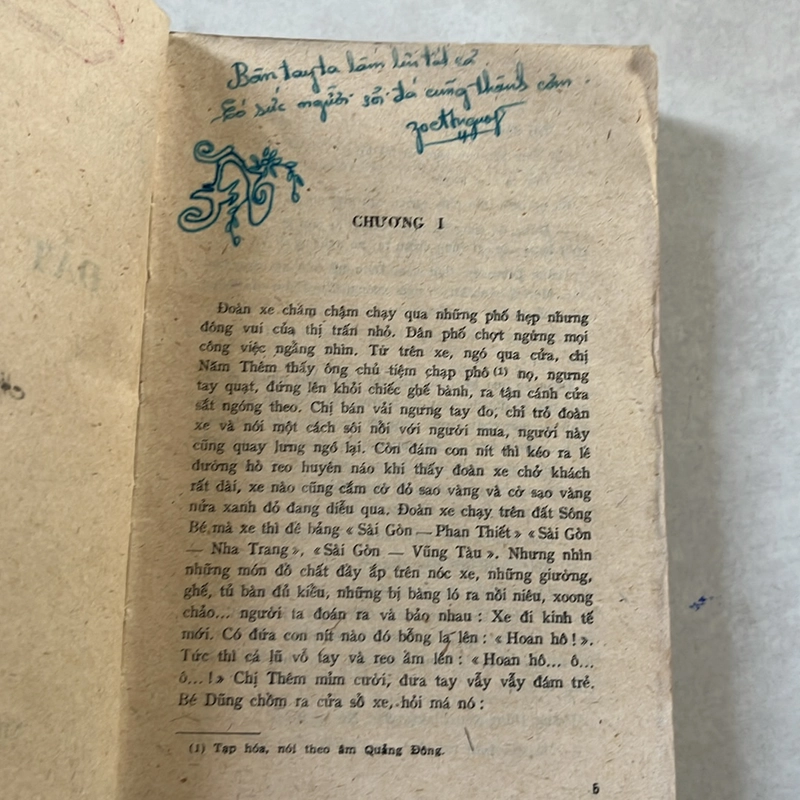 Bàn tay ta làm lên tất cả
Có sức người sỏi đá cũng thành cơm
CHƯƠNG I
Đoàn xe chầm chậm chạy qua những phố hẹp nhưng
đông vui của thị trấn nhỏ. Dân phố chợt ngừng mọi
công việc ngẳng nhìn. Từ trên xe, ngó qua cửa, chị
Năm Thêm thấy ông chủ tiệm chạp phô (1) nọ, ngưng
tay quạt, đứng lên khỏi chiếc ghế bành, ra tận cánh cửa
sắt ngóng theo. Chị bán vải ngưng tay đo, chỉ trỏ đoàn
xe và nói một cách sôi nổi với người mua, người này
cũng quay lưng ngó lại. Còn đám con nít thì kéo ra lề
đường hò reo huyên náo khi thấy đoàn xe chở khách
rất dài, xe nào cũng cắm cờ đỏ sao vàng và cờ sao vàng
nửa xanh đỏ đang diễu qua. Đoàn xe chạy trên đất Sông
Bé mà xe thì đề bảng « Sài Gòn — Phan Thiết » « Sài Gòn
— Nha Trang », « Sài Gòn — Vũng Tàu ». Nhưng nhìn
những món đồ chất đầy ắp trên nóc xe, những giường,
ghế, tủ bàn đủ kiểu, những bị bàng ló ra nồi niêu, xoong
chảo... người ta đoán ra và bảo nhau : Xe đi kinh tế
mới. Có đứa con nít nào đó bỗng la lên : « Hoan hô ! ».
Tức thì cả lũ vỗ tay và reo ầm lên : « Hoan hô... ô...
ô... ! » Chị Thêm mỉm cười, đưa tay vẫy vẫy đám trẻ.
Bé Dũng chồm ra cửa sổ xe, hỏi má nó :
(1) Tạp hóa, nói theo âm Quảng Đông.
5